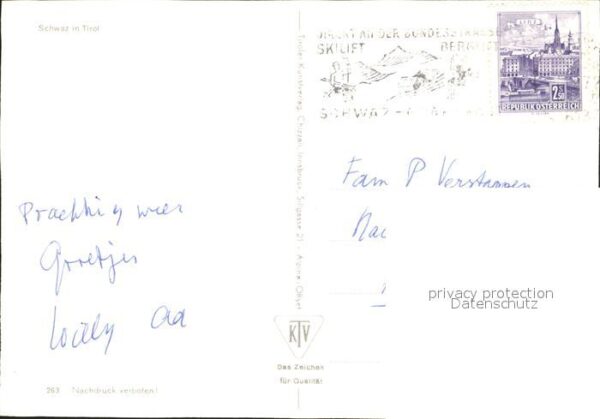 Schwaz in Tirol
Prachtig weer
Groetjes
Willy Ad
263 Nachdruck verboten!
Tiroler Kunstverlag Chizzali, Innsbruck, Sillgasse 21 -
KTV
Das Zeichen
für Qualität
DIREKT AN DER BUNDESSTRASSE
SKILIFT
SCHWAZ -
LINZ
2.50
REPUBLIK ÖSTERREICH
Fam P Verstappen
privacy protection
Datenschutz